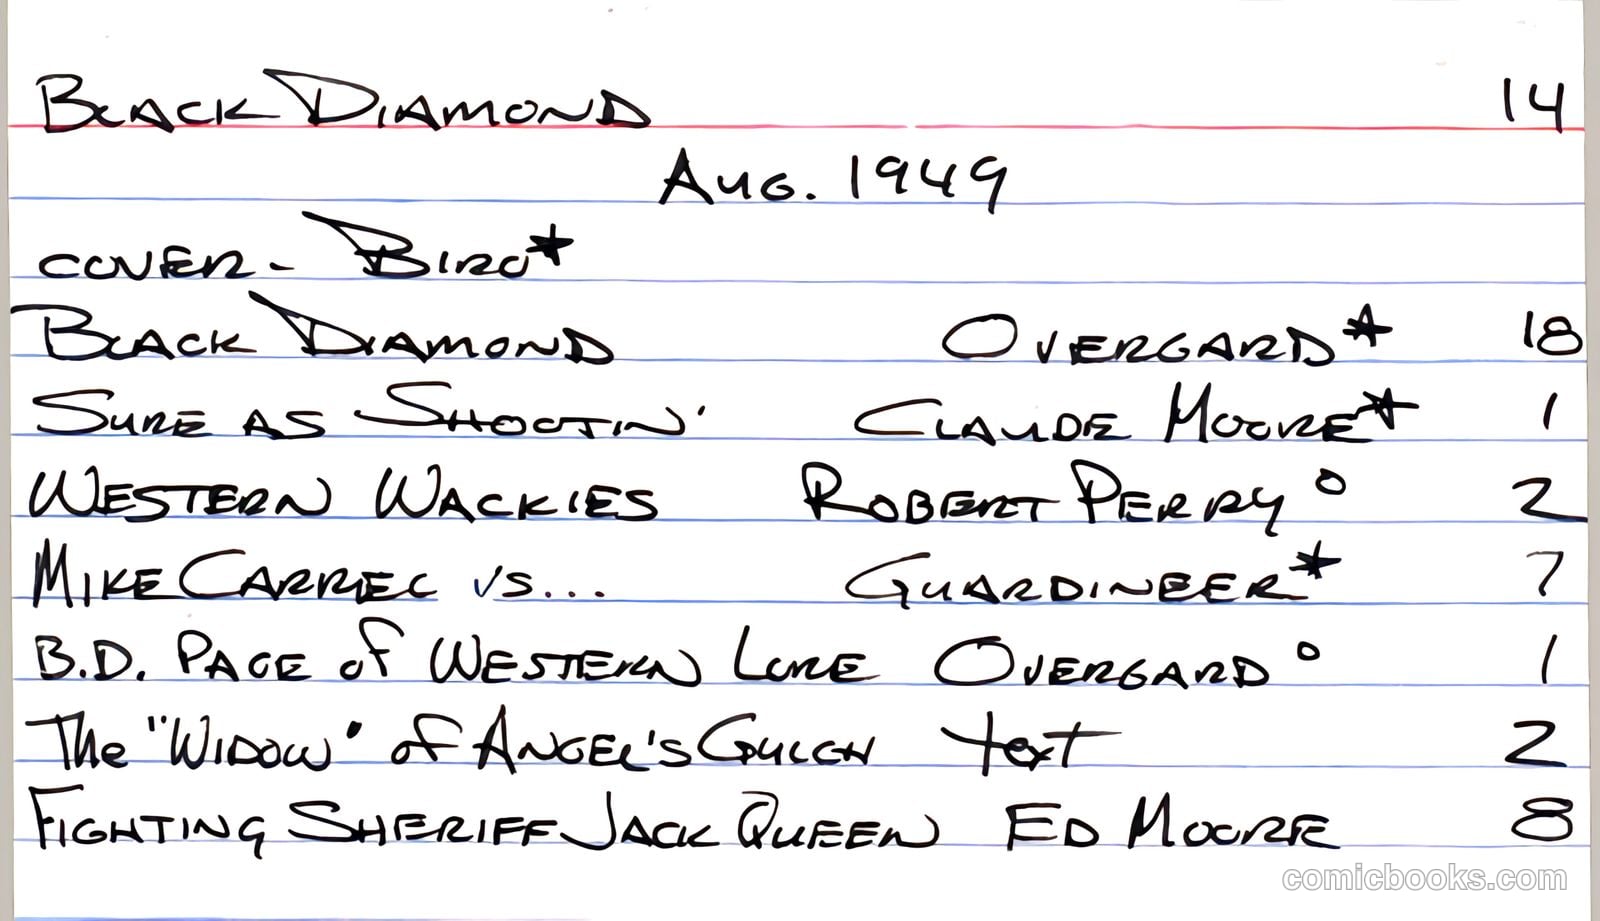 Black Diamond 14
Aug. 1949
cover - Biro*
Black Diamond Overgard* 18
Sure as Shootin' Claude Moore* 1
Western Wackies Robert Perry° 2
Mike Carrel vs... Guardineer* 7
B.D. Page of Western Lore Overgard° 1
The "Widow" of Angel's Gulch text 2
Fighting Sheriff Jack Queen Ed Moore 8
comicbooks.com